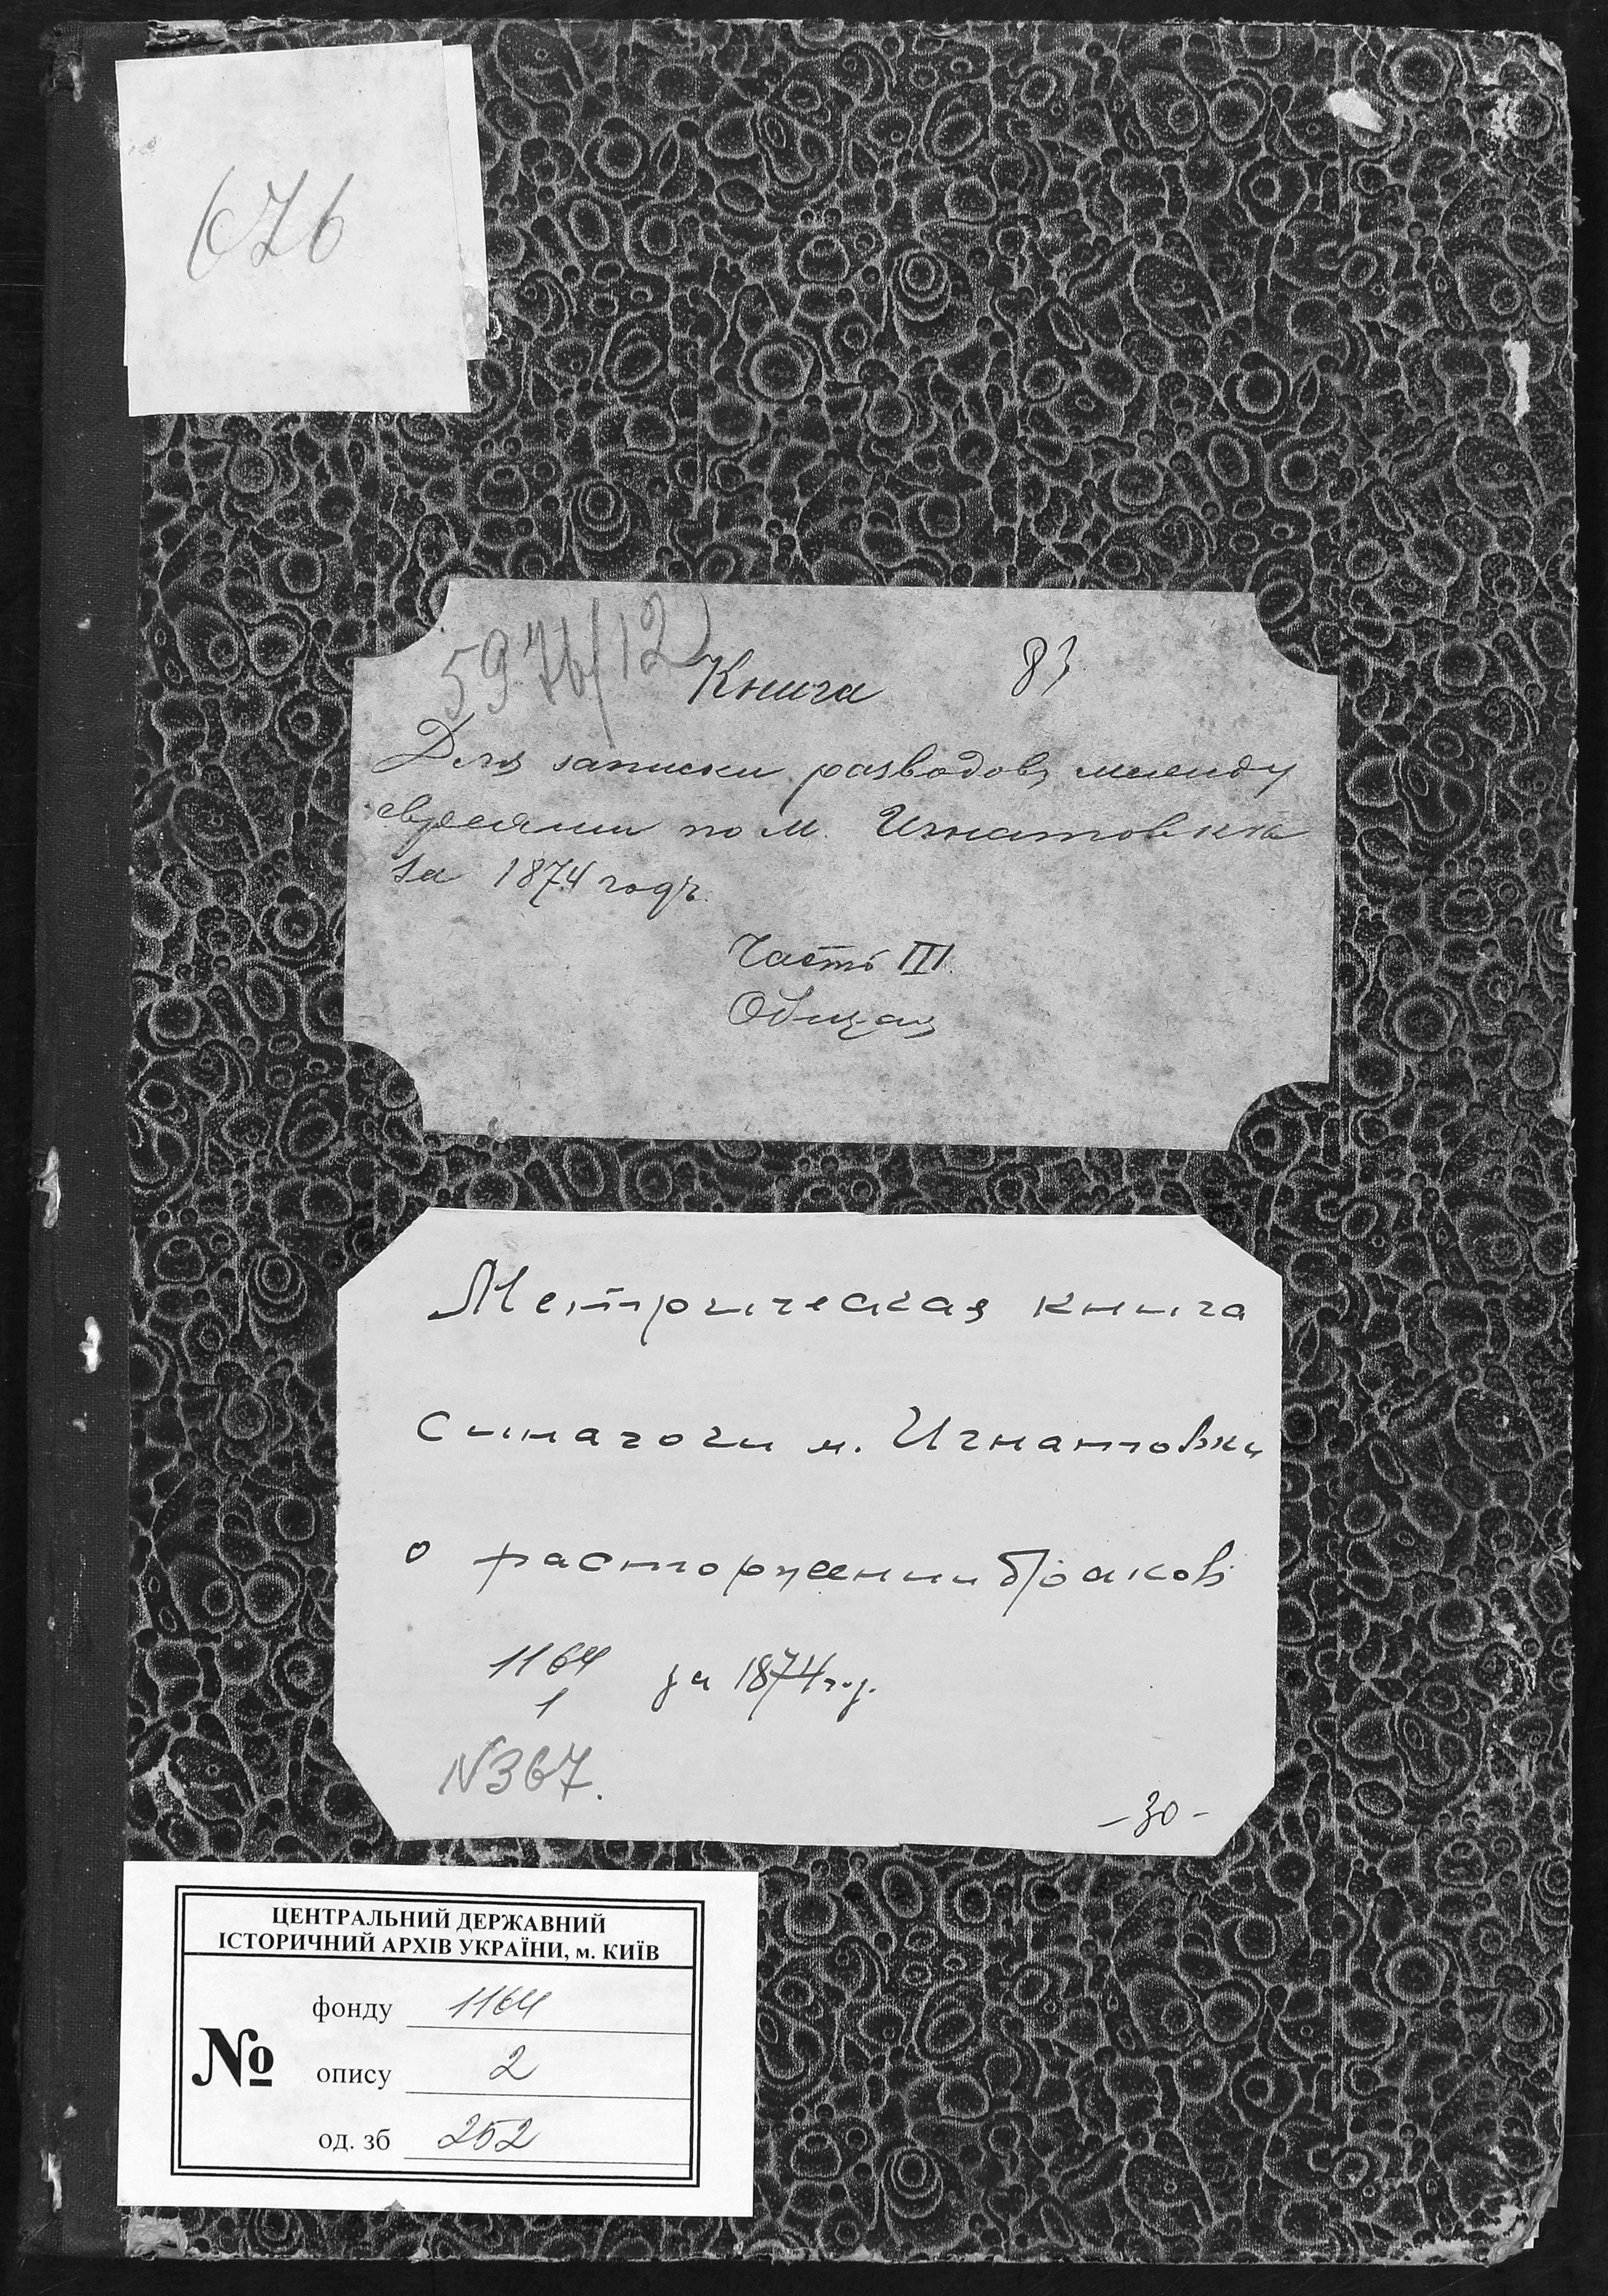 676
5976/12
Книга
83
Для записки разводовъ между
евреями по м. Игнатовкѣ
за 1874 годъ.
Часть III.
Общая
Метрическая книга
синагоги м. Игнатовки
о расторжении браков
1164
1
за 1874 г.
N367.
-30-
ЦЕНТРАЛЬНИЙ ДЕРЖАВНИЙ
ІСТОРИЧНИЙ АРХІВ УКРАЇНИ, м. КИЇВ
№
фонду 1164
опису 2
од. зб 252